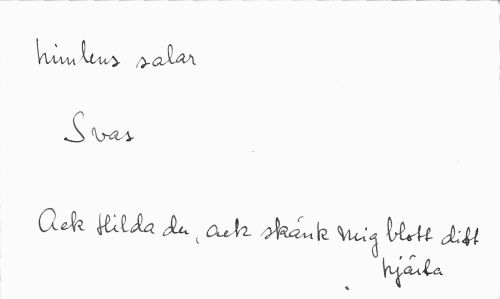 himlens salar
Svas
Ack Hilda du, ack skänk mig blott ditt
hjärta